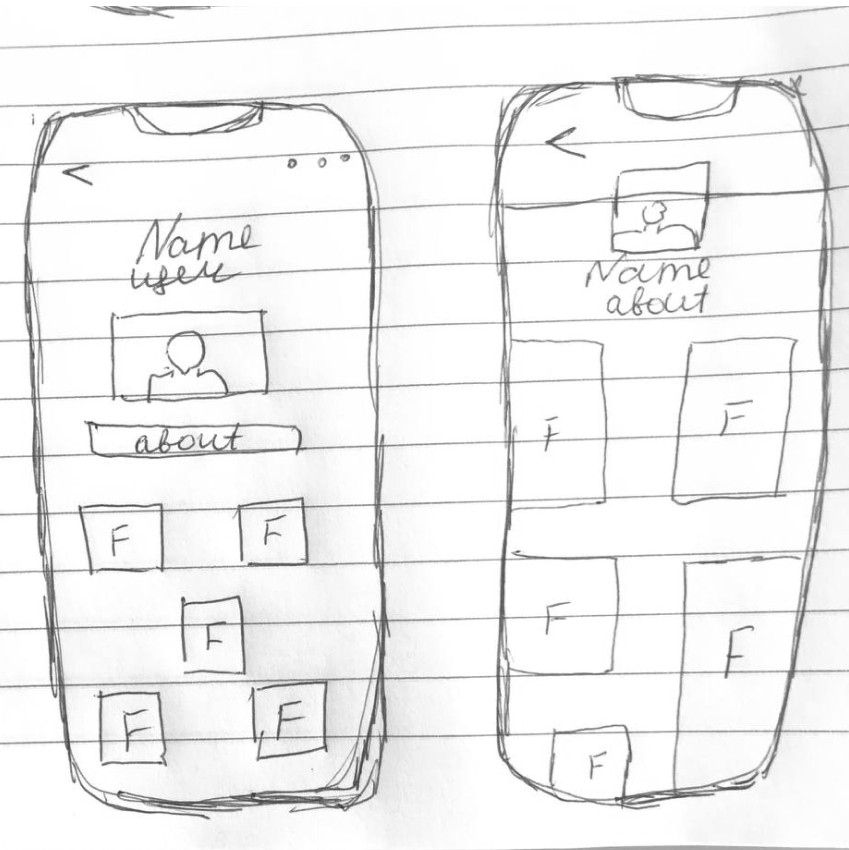 Name
user
about
F F
F
F F
Name
about
F F
F F
F